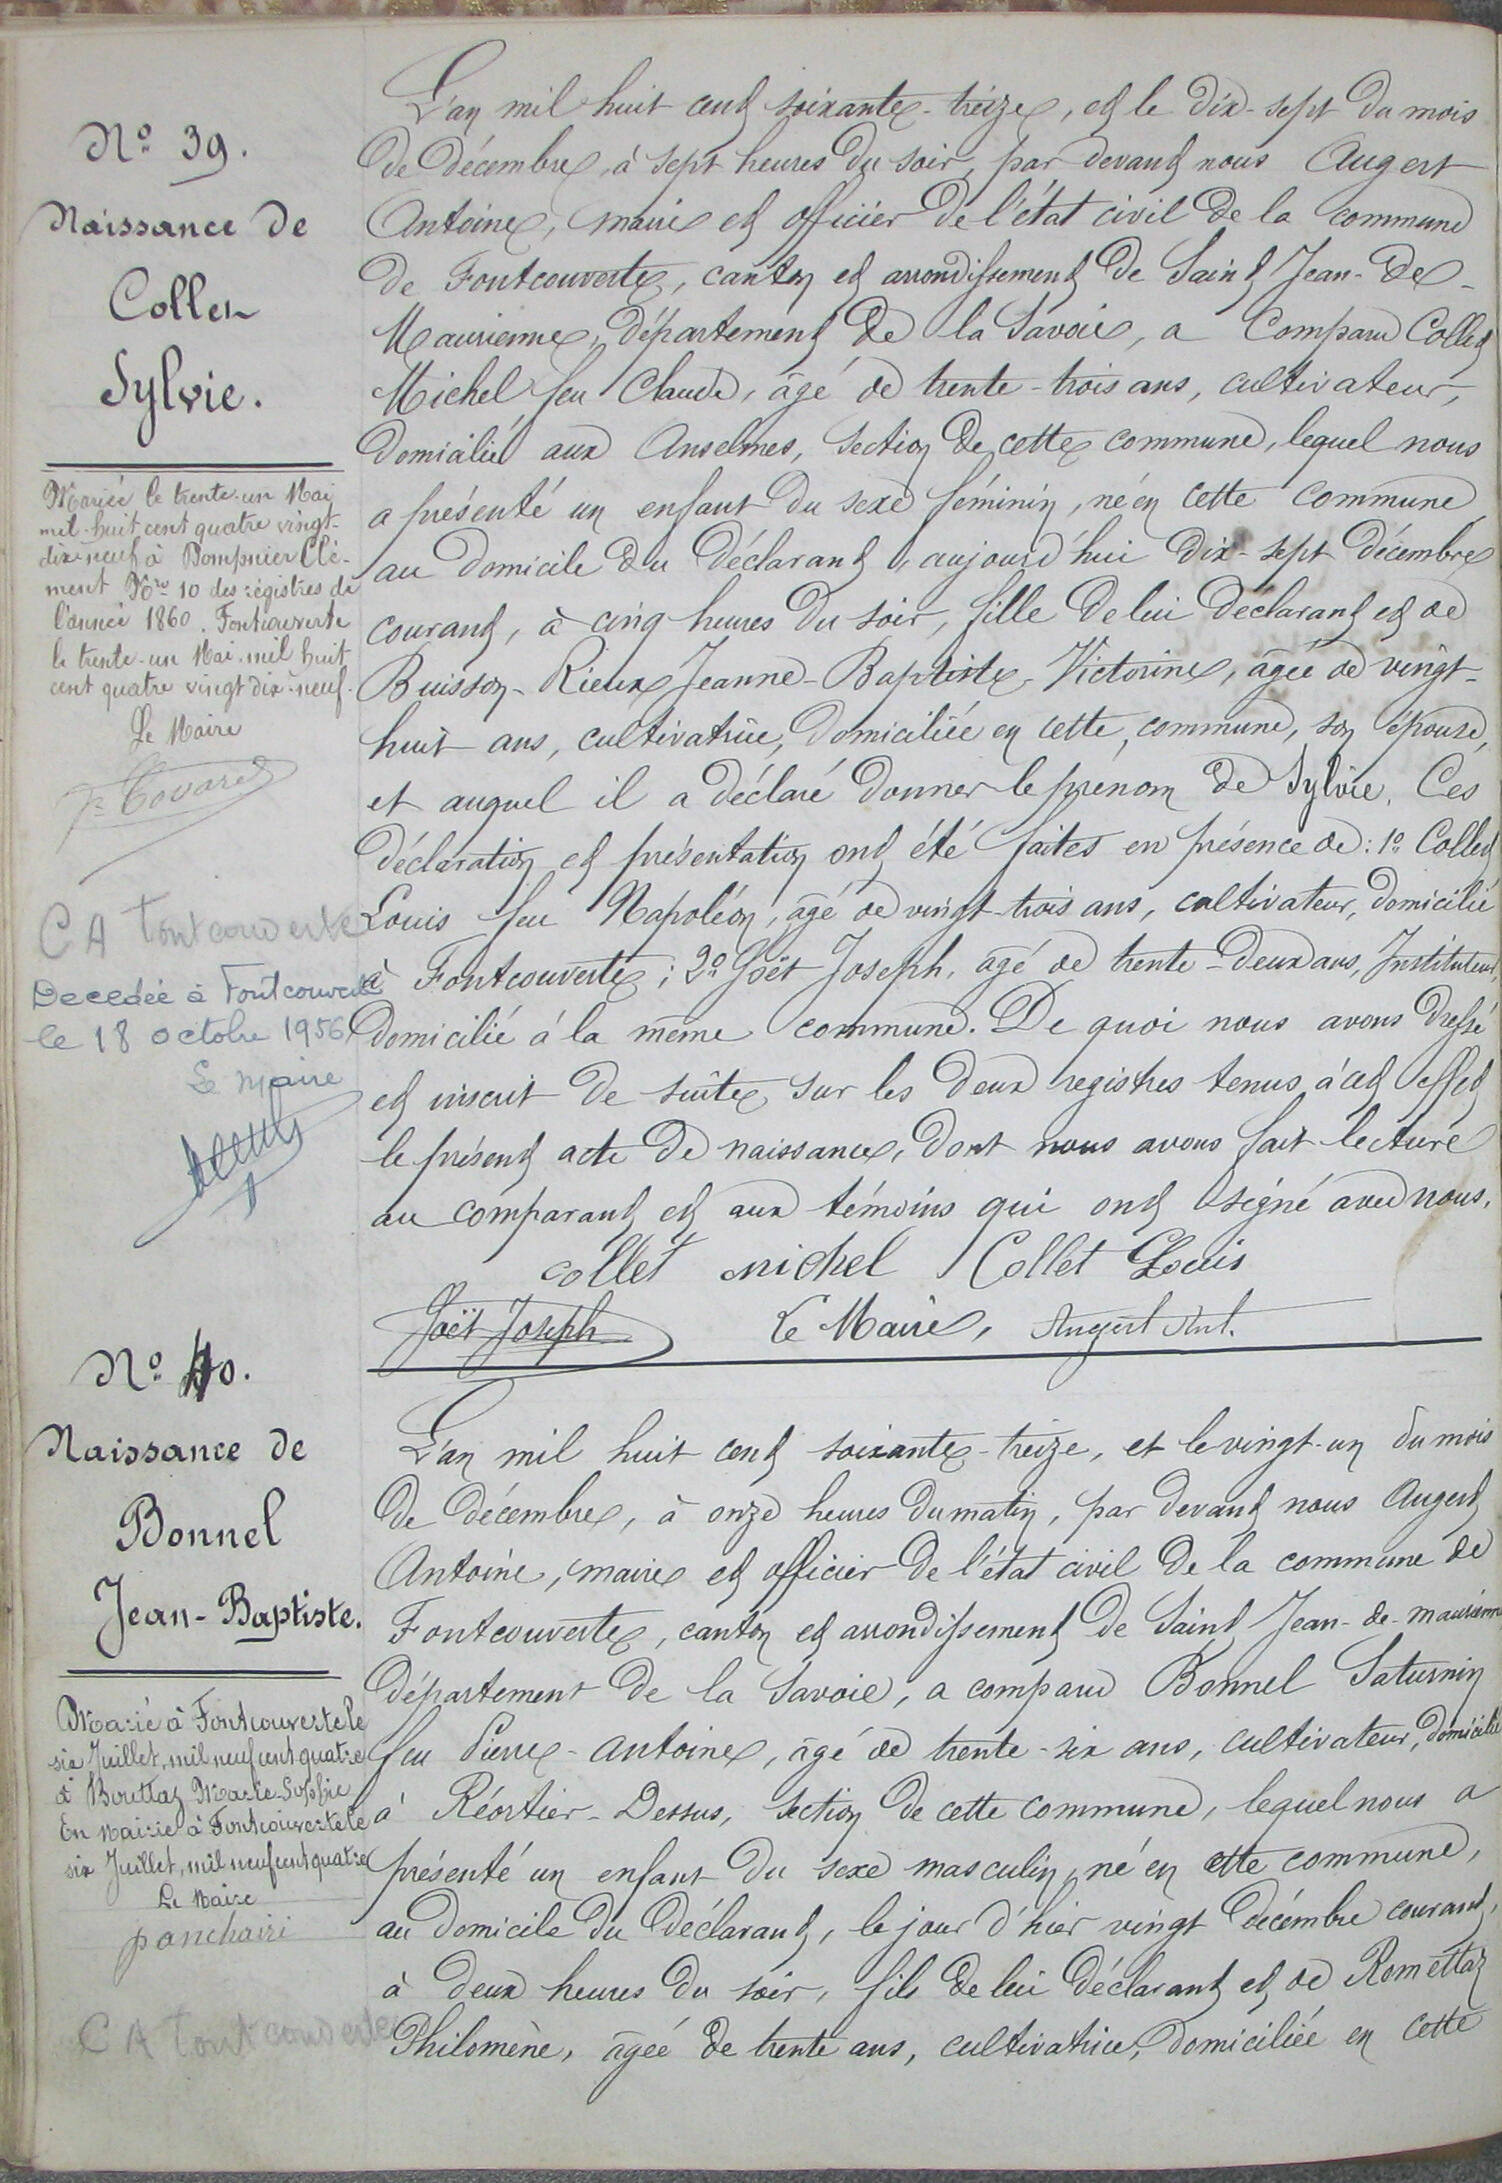 N° 39.
Naissance de
Collet
Sylvie.
Mariée le trente-un Mai
mil-huit cent quatre vingt-
dix-neuf à Dompnier Clé-
ment Nro 10 des régistres de
l'année 1860. Fontcouverte
le trente-un Mai mil huit
cent quatre vingt dix-neuf.
Le Maire
C A Fontcouverte
Decedée à Fontcouverte
le 18 octobre 1956
Le Maire
L'an mil huit cent soixante-treize, et le dix-sept du mois
de décembre, à sept heures du soir, par devant nous Augert
Antoine, maire et officier de l'état civil de la commune
de Fontcouverte, canton et arrondissement de Saint Jean-de-
Maurienne, département de la Savoie, a comparu Collet
Michel feu Claude, âgé de trente-trois ans, cultivateur,
domicilié aux Anselmes, section de cette commune, lequel nous
a présenté un enfant du sexe féminin, né en cette commune
au domicile du déclarant, aujourd'hui dix-sept décembre
courant, à cinq heures du soir, fille de lui déclarant et de
Buisson-Rieux Jeanne-Baptiste-Victorine, âgée de vingt-
huit ans, cultivatrice, domiciliée en cette commune, son épouse,
et auquel il a déclaré donner le prénom de Sylvie. Ces
déclaration et présentation ont été faites en présence de: 1° Collet
Louis feu Napoléon, âgé de vingt-trois ans, cultivateur, domicilié
à Fontcouverte; 2° Joët Joseph, âgé de trente-deux ans, Instituteur,
domicilié à la même commune. De quoi nous avons dressé
et inscrit de suite sur les deux registres tenus à cet effet
le présent acte de naissance, dont nous avons fait lecture
au comparant et aux témoins qui ont signé avec nous.
collet michel Collet Louis
Joët Joseph Le Maire, Augert Ant.
N° 40.
Naissance de
Bonnel
Jean-Baptiste.
Marié à Fontcouverte le
six Juillet, mil neuf cent quatre
à Bouttaz Marie-Sophie
En Mairie à Fontcouverte le
six Juillet, mil neuf cent quatre
Le Maire
C A Fontcouverte
L'an mil huit cent soixante-treize, et le vingt-un du mois
de décembre, à onze heures du matin, par devant nous Augert
Antoine, maire et officier de l'état civil de la commune de
Fontcouverte, canton et arrondissement de Saint Jean-de-maurienne
département de la Savoie, a comparu Bonnel Saturnin
feu Pierre-Antoine, âgé de trente-six ans, cultivateur, domicilié
à Réortier-Dessus, section de cette commune, lequel nous a
présenté un enfant du sexe masculin, né en cette commune,
au domicile du déclarant, le jour d'hier vingt décembre courant,
à deux heures du soir, fils de lui déclarant et de Romettaz
Philomène, âgée de trente ans, cultivatrice, domiciliée en cette